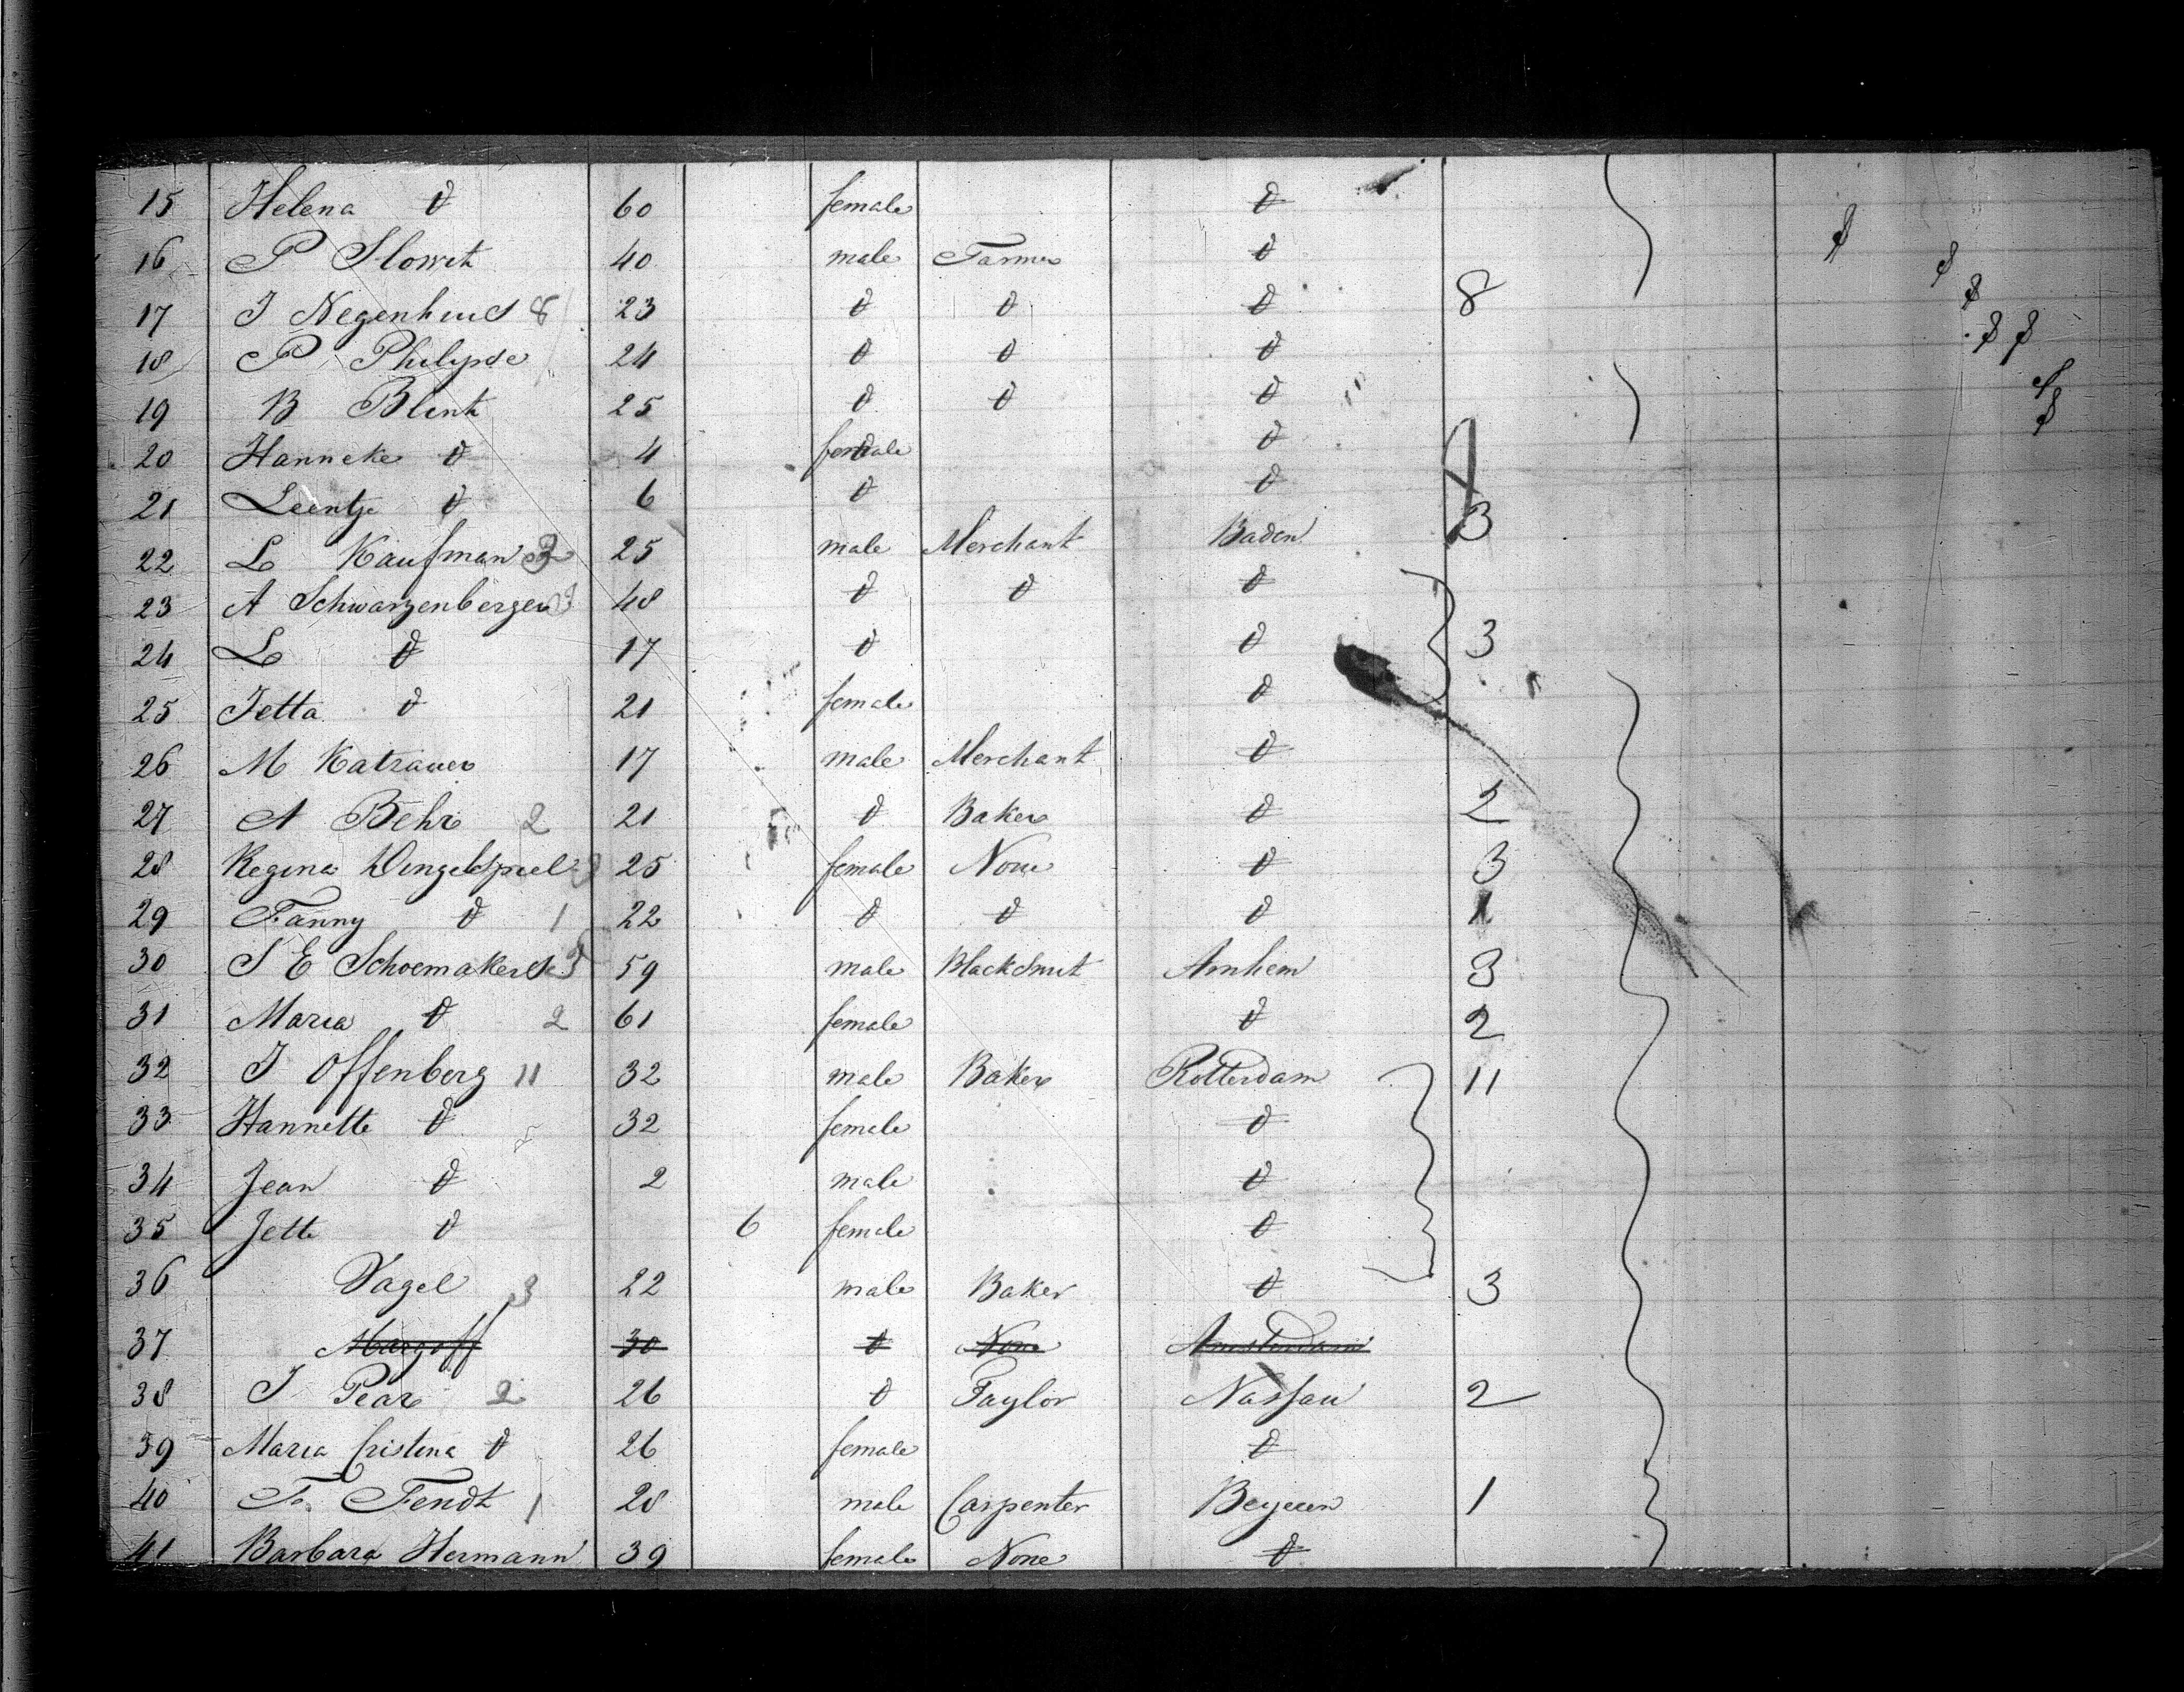 15 Helena d 60 female d
16 P Slowit 40 male Farmer d
17 J Negenhuis 8 23 d d d 8
18 P Philipse 24 d d d
19 B Blink 25 d d d
20 Hanneke d 4 female d
21 Leentje d 6 d d
22 L Kaufman 3 25 male Merchant Baden 3
23 A Schwarzenberger 3 48 d d d
24 L d 17 d d 3
25 Jetta d 21 female d
26 M Katzauer 17 male Merchant d
27 A Behr 2 21 d Baker d 2
28 Regina Dingelspiel 3 25 female None d 3
29 Fanny d 1 22 d d d 1
30 S E Schoemakers 3 59 male Blacksmit Arnhem 3
31 Maria d 2 61 female d 2
32 J Offenberg 11 32 male Baker Rotterdam 11
33 Hannette d 32 female d
34 Jean d 2 male d
35 Jette d 6 female d
36 Vagel 3 22 male Baker d 3
37 30 d None Amsterdam
38 J Pear 2 26 d Taylor Nassau 2
39 Maria Cristina d 26 female d
40 F. Fendt 1 28 male Carpenter Beyeren 1
41 Barbara Hermann 39 female None d